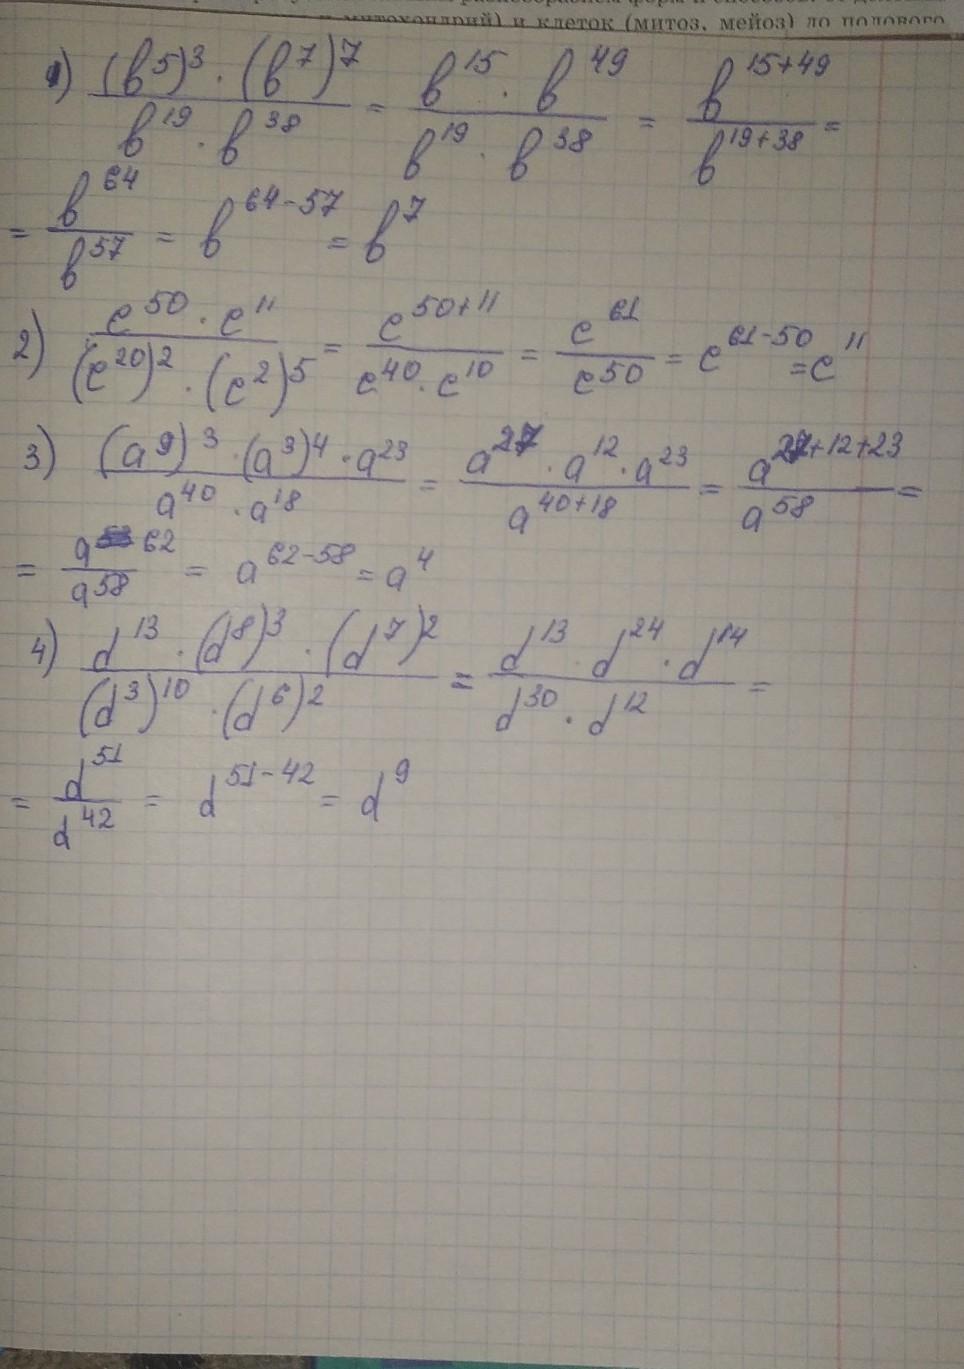 митохондрий) и клеток (митоз, мейоз) до полового
1) (b⁵)³ · (b⁷)⁷ / b¹⁹ · b³⁸ = b¹⁵ · b⁴⁹ / b¹⁹ · b³⁸ = b¹⁵⁺⁴⁹ / b¹⁹⁺³⁸ =
= b⁶⁴ / b⁵⁷ = b⁶⁴⁻⁵⁷ = b⁷
2) c⁵⁰ · c¹¹ / (c²⁰)² · (c²)⁵ = c⁵⁰⁺¹¹ / c⁴⁰ · c¹⁰ = c⁶¹ / c⁵⁰ = c⁶¹⁻⁵⁰ = c¹¹
3) (a⁹)³ · (a³)⁴ · a²³ / a⁴⁰ · a¹⁸ = a²⁷ · a¹² · a²³ / a⁴⁰⁺¹⁸ = a²⁷⁺¹²⁺²³ / a⁵⁸ =
= a⁶² / a⁵⁸ = a⁶²⁻⁵⁸ = a⁴
4) d¹³ · (d⁸)³ · (d⁷)² / (d³)¹⁰ · (d⁶)² = d¹³ · d²⁴ · d¹⁴ / d³⁰ · d¹² =
= d⁵¹ / d⁴² = d⁵¹⁻⁴² = d⁹